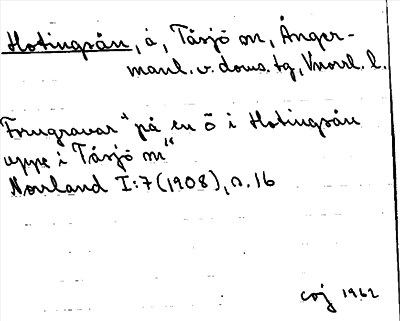 Hotingsån, å, Tåsjö sn, Ånger-
manl. v. doms. tg, Vnorrl. l.
Frugravar "på en ö i Hotingsån
uppe i Tåsjö sn"
Norrland I:7 (1908), s. 16
coj 1962